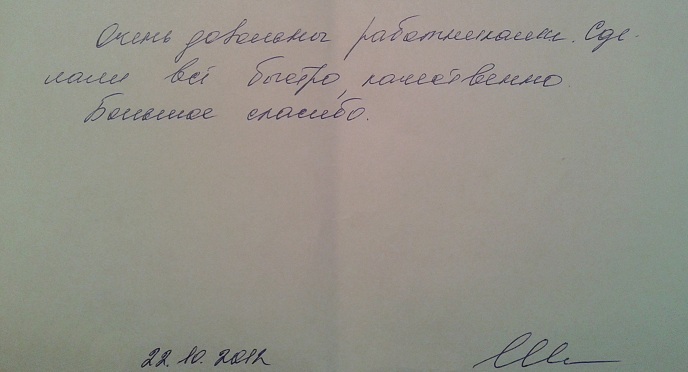 Очень довольны работниками. Сде-
лали всё быстро, качественно
Большое спасибо.
22.10.2012